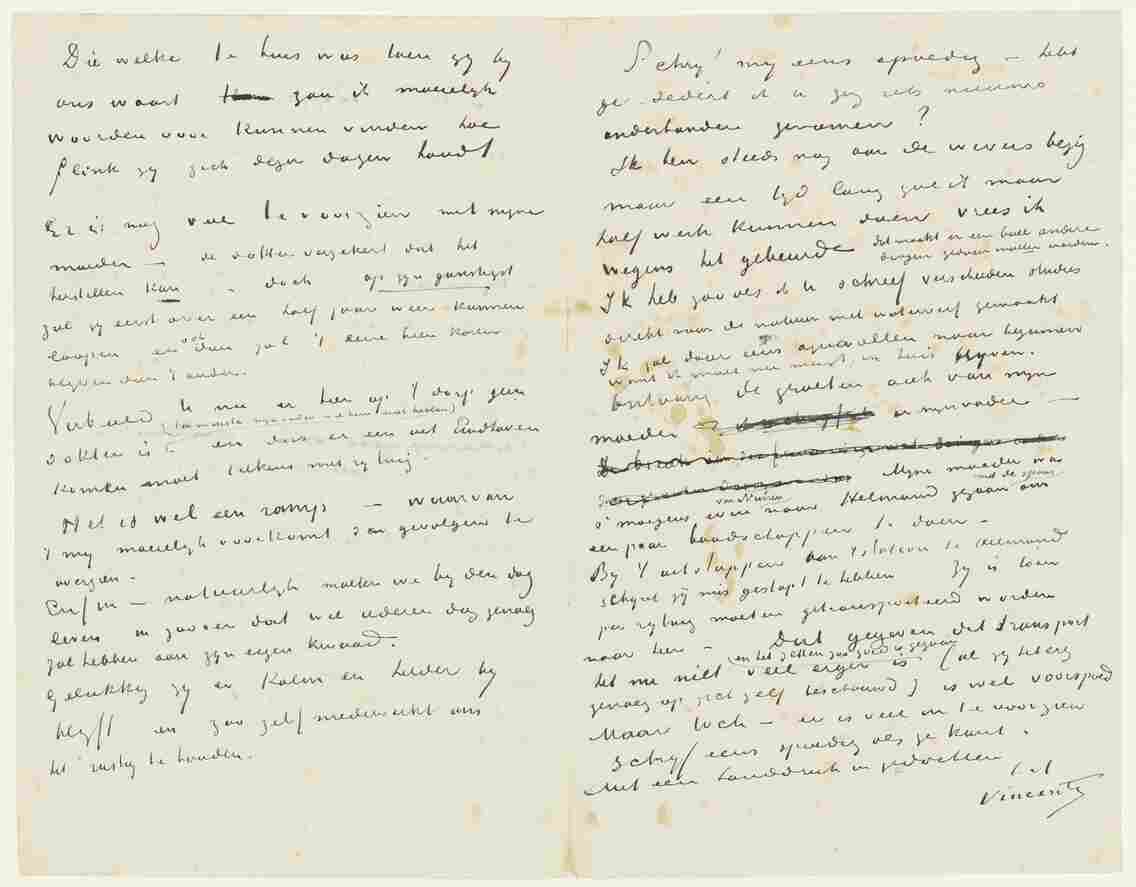 Die welke te huis was toen gij bij
ons waart zou ik moeielijk
woorden voor kunnen vinden hoe
flink zij zich dezer dagen houdt
Er is nog veel te voorzien met mijne
moeder – de dokter verzekert dat het
herstellen kan – doch op zijn gunstigst
zal zij eerst over een half jaar weer kunnen
loopen en ook dan zal 't eene been korter
blijven dan 't ander.
Verbeeld U nu er hier op 't dorp geen
dokter is en deze er een uit Eindhoven
komen moet telkens met rijtuig.
Het is wel een ramp – waarvan
't mij moeielijk voorkomt de gevolgen te
overzien.
Enfin – natuurlijk moeten we bij den dag
leven in zoover dat wel iedere dag genoeg
zal hebben aan zijn eigen kwaad.
Gelukkig zij er kalm en helder bij
blijft en zoo zelf medewerkt ons
het rustig te houden.
Schrijf mij eens spoedig – hebt
ge sedert ik U zag iets nieuws
onderhanden genomen?
Ik ben steeds nog aan de wevers bezig
maar een tijd lang zal ik maar
half werk kunnen doen vrees ik
wegens het gebeurde dat maakt er een boel andere
dingen gedaan moeten worden.
Ik heb zoo als ik U schreef verscheiden studies
direkt naar de natuur met waterverf gemaakt
Ik zal daar eens aquarellen naar beginnen
want ik moet nu meest in huis blijven.
Ontvang de groeten ook van mijn
moeder en mijn vader –
Mijne moeder was
's morgens van Nuenen even naar Helmond gegaan met de spoor om
een paar boodschappen te doen –
Bij 't uitstappen aan 't station te Helmond
schijnt zij mis gestapt te hebben Zij is toen
per rijtuig moeten getransporteerd worden
naar hier – Dat gegeven dit transport
en het zetten zoo goed is gegaan
het nu niet veel erger is (al zij het erg
genoeg op zich zelf beschouwd) is wel voorspoed
Maar toch – er is veel in te voorzien
Schrijf eens spoedig als ge kunt.
Met een handdruk in gedachten
t.t.
Vincent